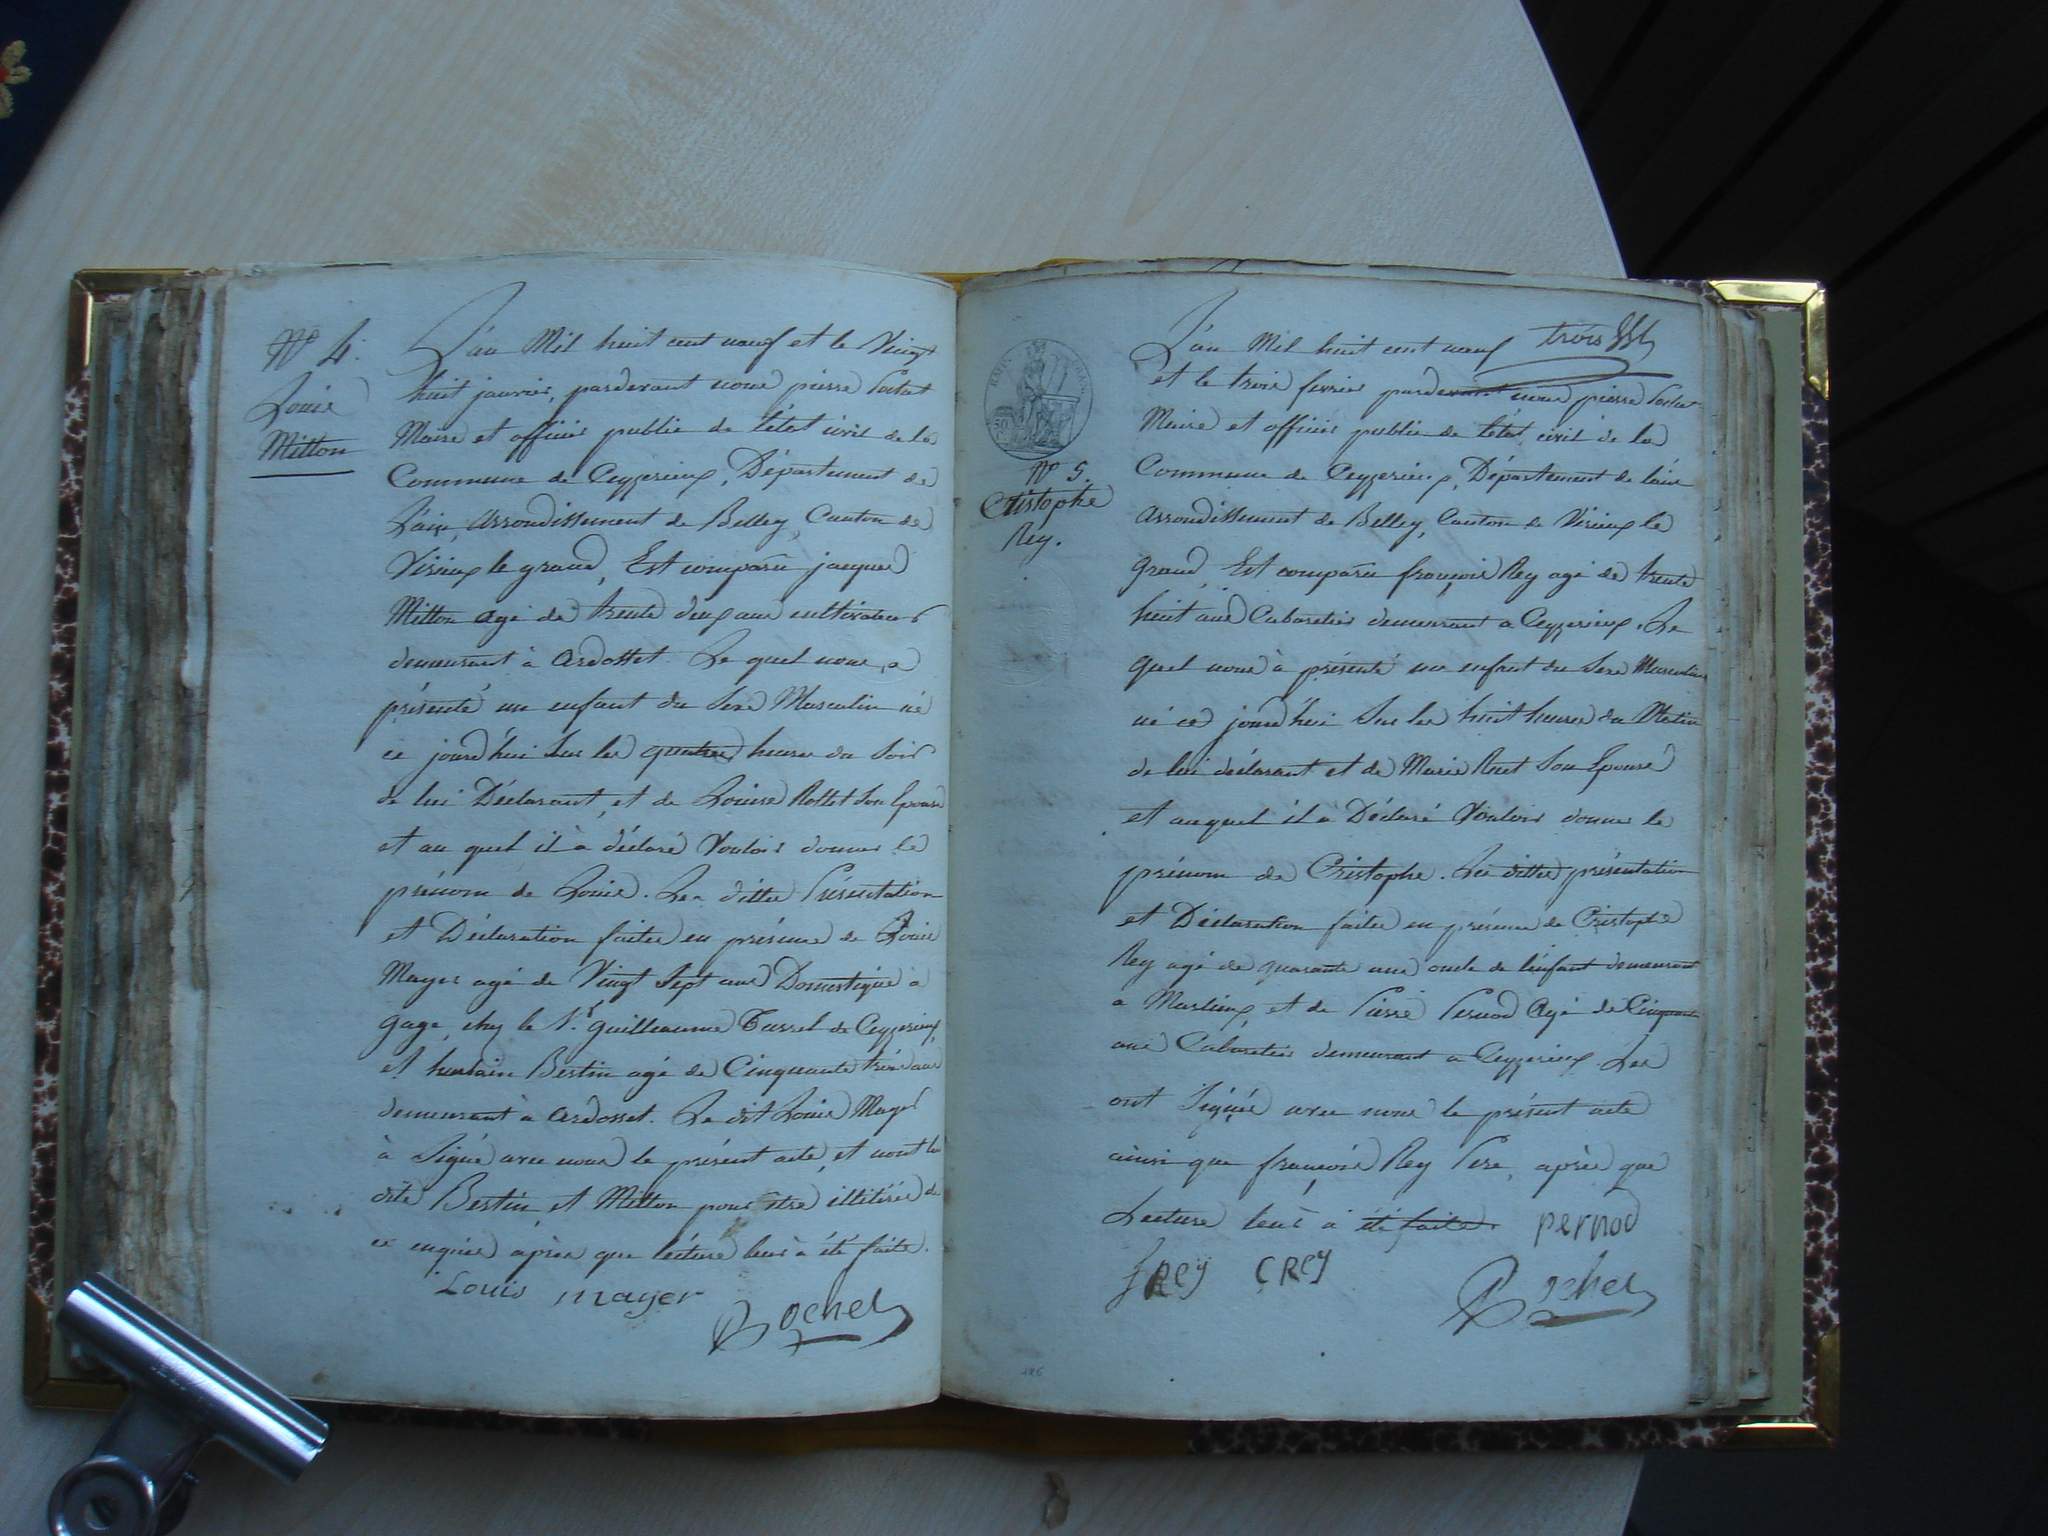 N° 4.
Louis
Mitton
L'an Mil huit cent neuf et le Vingt
huit janvier, pardevant nous pierre
Maire et officier public de l'état civil de la
Commune de Ceyzerieux, Département de
L'ain, arrondissement de Belley, Canton de
Virieux le grand, Est comparu jacques
Mitton agé de trente deux ans cultivateur
demeurant à Ardosset. Le quel nous a
présenté un enfant du Sexe Masculin né
ce jourd'hui Sur les quatres heures du Soir
de lui Déclarant, et de Louise Rottet Son Epouse
et au quel il à déclaré Vouloir donner le
prénom de Louis. Les dittes Présentation
et Déclaration faites en présence de Louis
Mayer agé de Vingt Sept ans Domestique à
gage, chez le Sr. guilleaume de Ceyzerieux,
et Bertin agé de Cinquante trois ans
demeurant à ardosset. Le dit Louis Mayer
à Signé avec nous le présent acte, et non les
dits Bertin, et Mitton pour être illitérés de
ce enquis après que lecture leur à été faite.
Louis mayer
Rochel
trois
L'an Mil huit cent neuf
et le trois fevrier pardevant nous pierre
Maire et officier public de l'état civil de la
Commune de Ceyzerieux, Département de l'ain
arrondissement de Belley, Canton de Virieux le
grand, Est comparu françois Rey agé de trente
huit ans Cabaretier demeurant a Ceyzerieux. Le
quel nous à présenté un enfant du Sexe Masculin
né ce jourd'hui Sur les huit heures du Matin
de lui déclarant et de Marie Ruet Son Epouse
et auquel il à Déclaré Vouloir donner le
prénom de Cristophe. Les dittes présentation
et Déclaration faites en présence de Cristophe
Rey agé de quarante ans oncle de l'enfant demeurant
a Marlieux, et de Pierre Pernod Agé de Cinquante
ans Cabaretier demeurant a Ceyzerieux. Les
ont Signés avec nous le présent acte
ainsi que françois Rey Pere, après que
Lecture leur à été faite.
pernod
fRey CRey
Rochel
N° 5.
Cristophe
Rey.